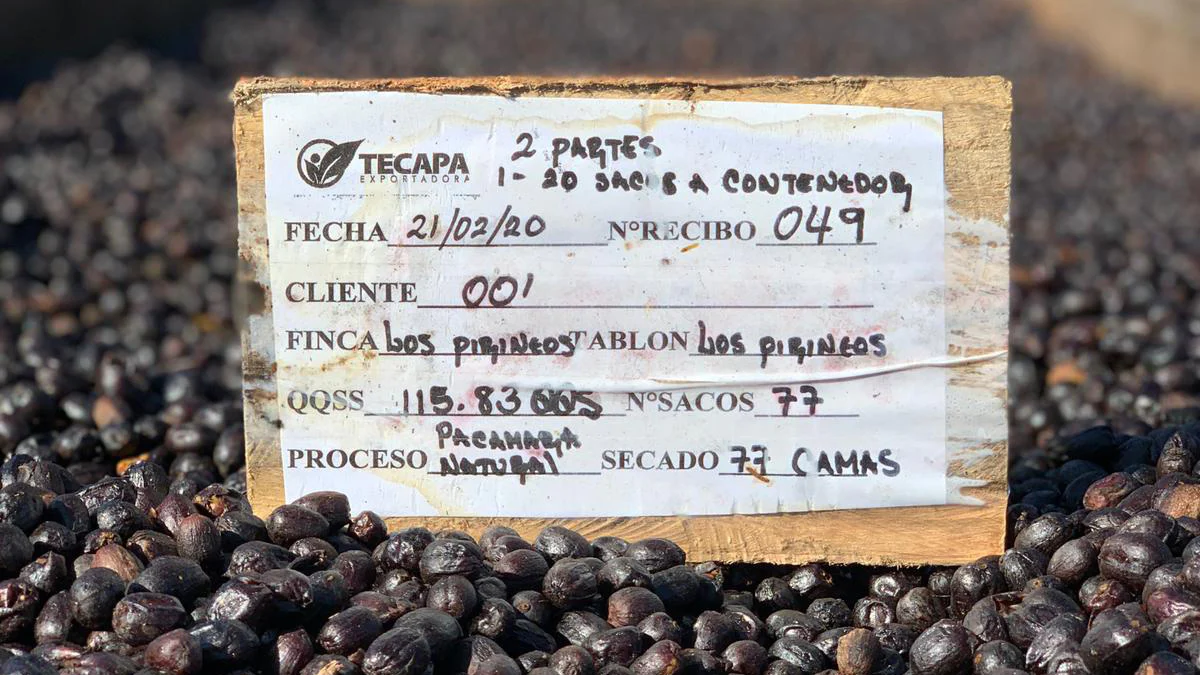 TECAPA
EXPORTADORA
2 PARTES
1- 20 SACOS A CONTENEDOR,
FECHA 21/02/20 N°RECIBO 049
CLIENTE 001
FINCA LOS PIRINEOS TABLON LOS PIRINEOS
QQSS 115.83 N°SACOS 77
PACAMARA
PROCESO NATURAL SECADO 77 CAMAS